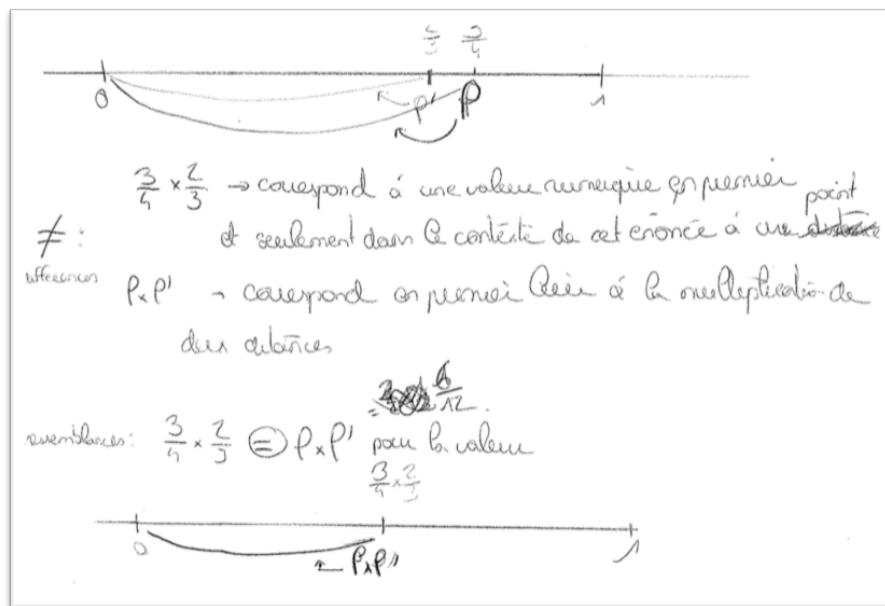 2/3 3/4
0 P' P 1
3/4 × 2/3 → correspond à une valeur numérique en premier
≠ : et seulement dans le contexte de cet énoncé à un point
différences P×P' → correspond en premier lieu à la multiplication de
deux distances
= 6/12
ressemblances: 3/4 × 2/3 = P×P' pour la valeur
3/4 × 2/3
0 ← P×P' 1